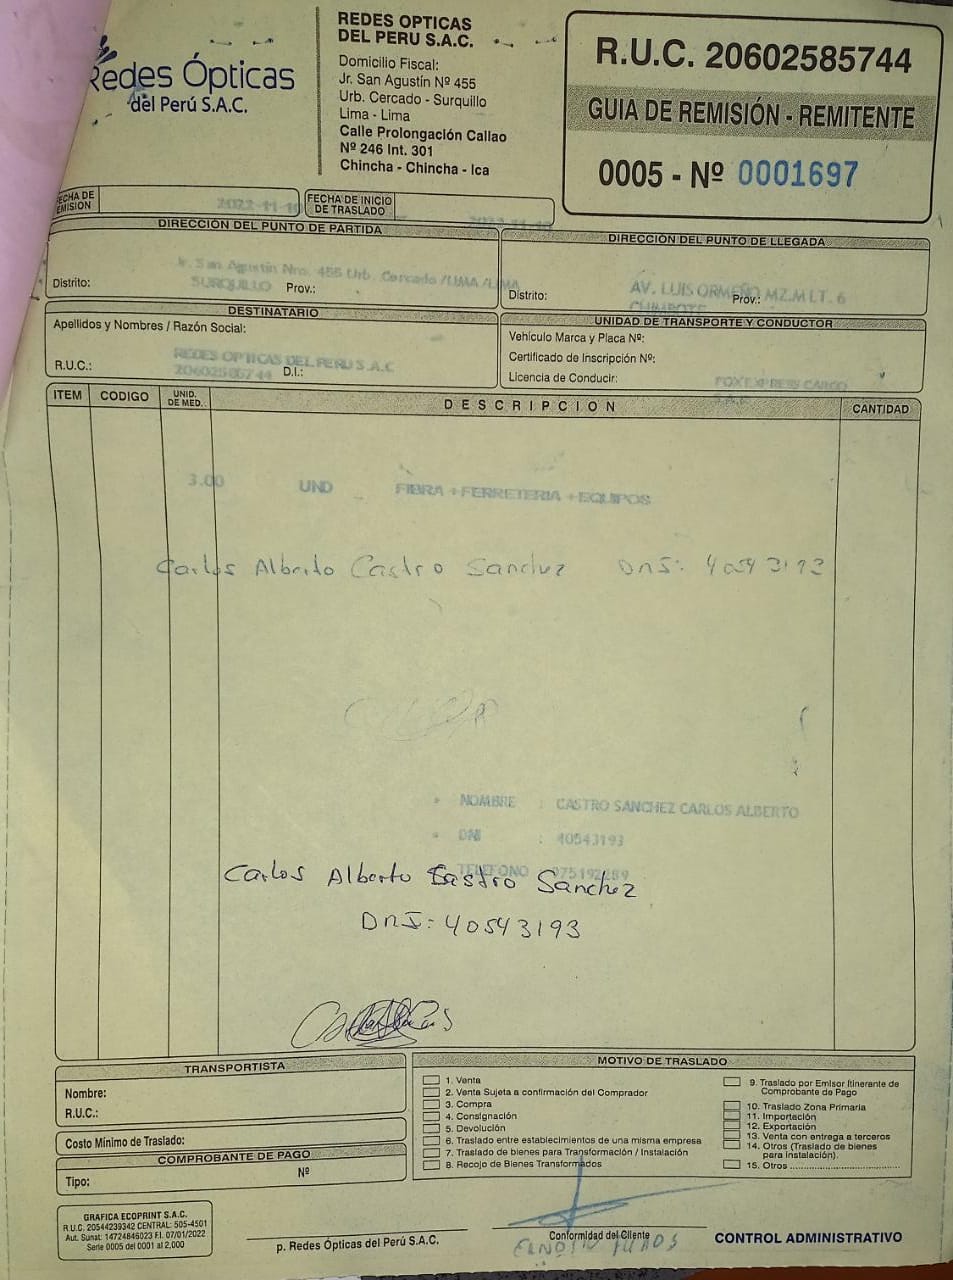 Redes Ópticas
del Perú S.A.C.
REDES OPTICAS
DEL PERU S.A.C.
Domicilio Fiscal:
Jr. San Agustín Nº 455
Urb. Cercado - Surquillo
Lima - Lima
Calle Prolongación Callao
Nº 246 Int. 301
Chincha - Chincha - Ica
R.U.C. 20602585744
GUIA DE REMISIÓN - REMITENTE
0005 - Nº 0001697
FECHA DE
EMISION
FECHA DE INICIO
DE TRASLADO
DIRECCIÓN DEL PUNTO DE PARTIDA
Jr. San Agustín Nro. 455 Urb. Cercado /LIMA /LIMA
SURQUILLO
Distrito: Prov.:
DIRECCIÓN DEL PUNTO DE LLEGADA
AV. LUIS ORMEÑO MZ.M LT. 6
CHIMBOTE
Distrito: Prov.:
DESTINATARIO
Apellidos y Nombres / Razón Social:
REDES OPTICAS DEL PERU S.A.C
R.U.C.: 20602585744 D.I.:
UNIDAD DE TRANSPORTE Y CONDUCTOR
Vehículo Marca y Placa Nº:
Certificado de Inscripción Nº:
Licencia de Conducir:
FOX EXPRESS CARGO
S.A.C
ITEM CODIGO UNID. DE MED. DESCRIPCION CANTIDAD
3.00 UND FIBRA +FERRETERIA +EQUIPOS
Carlos Alberto Castro Sanchez DNI: 40543193
NOMBRE : CASTRO SANCHEZ CARLOS ALBERTO
DNI : 40543193
TELEFONO 975192289
Carlos Alberto Castro Sanchez
DNI: 40543193
TRANSPORTISTA
Nombre:
R.U.C.:
Costo Mínimo de Traslado:
COMPROBANTE DE PAGO
Tipo: Nº
MOTIVO DE TRASLADO
1. Venta
2. Venta Sujeta a confirmación del Comprador
3. Compra
4. Consignación
5. Devolución
6. Traslado entre establecimientos de una misma empresa
7. Traslado de bienes para Transformación / Instalación
8. Recojo de Bienes Transformados
9. Traslado por Emisor Itinerante de
Comprobante de Pago
10. Traslado Zona Primaria
11. Importación
12. Exportación
13. Venta con entrega a terceros
14. Otros (Traslado de bienes
para Instalación).
15. Otros
GRAFICA ECOPRINT S.A.C.
R.U.C. 20544239342 CENTRAL: 505-4501
Aut. Sunat: 14724846023 F.I. 07/01/2022
Serie 0005 del 0001 al 2,000
p. Redes Ópticas del Perú S.A.C.
Conformidad del Cliente
CONTROL ADMINISTRATIVO